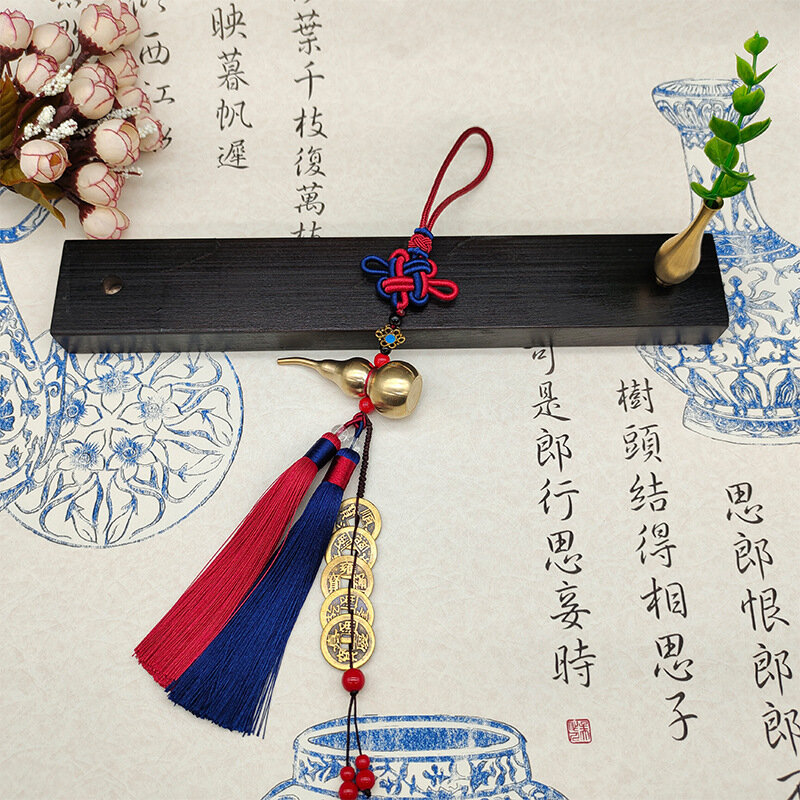 葉千枝復萬枝
映暮帆遲
西江
思郎恨郎郎不
樹頭結得相思子
是郎行思妾時